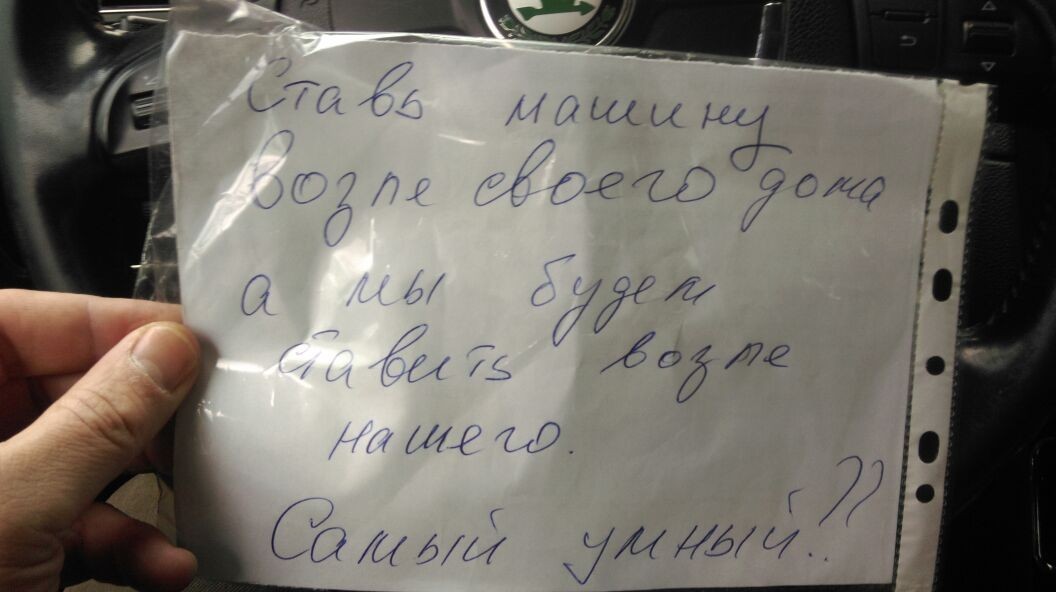 Ставь машину
возле своего дома
а мы будем
ставить возле
нашего.
Самый умный??